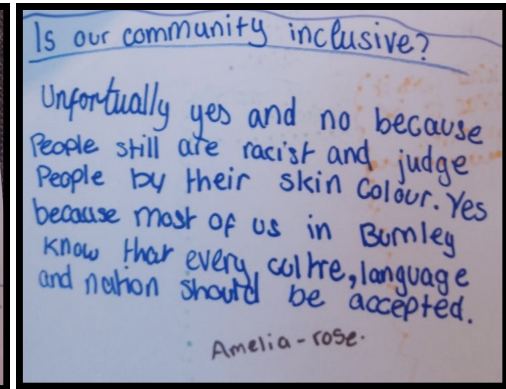 Is our community inclusive?
Unfortually yes and no because
People still are racist and judge
People by their skin colour. Yes
because most of us in Burnley
know that every cultre, language
and nation should be accepted.
Amelia-rose.